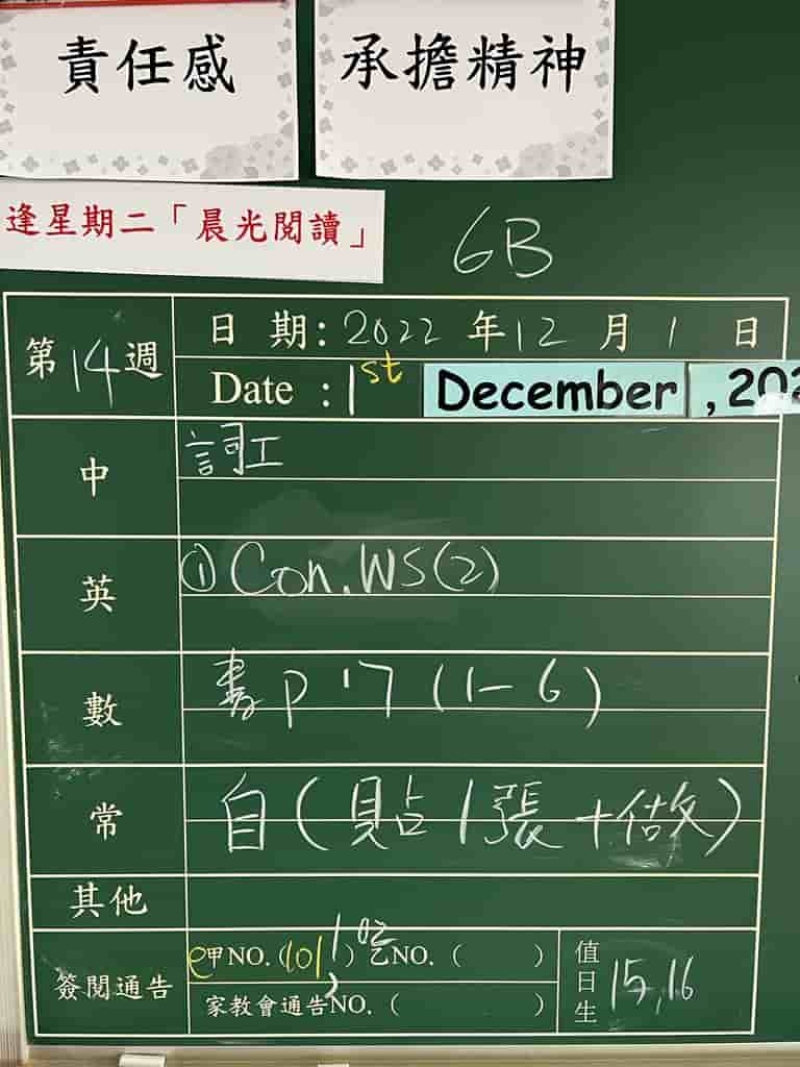 責任感
承擔精神
逢星期二「晨光閱讀」
6B
第14週
日期:2022年12月1日
Date : 1st December, 202
中
詞工
英
① Con. WS(2)
數
書P 17 (1-6)
常
自(貼1張+做)
其他
簽閱通告
e甲NO. (101, 102) 乙NO. ( )
家教會通告NO. ( )
值日生
15,16